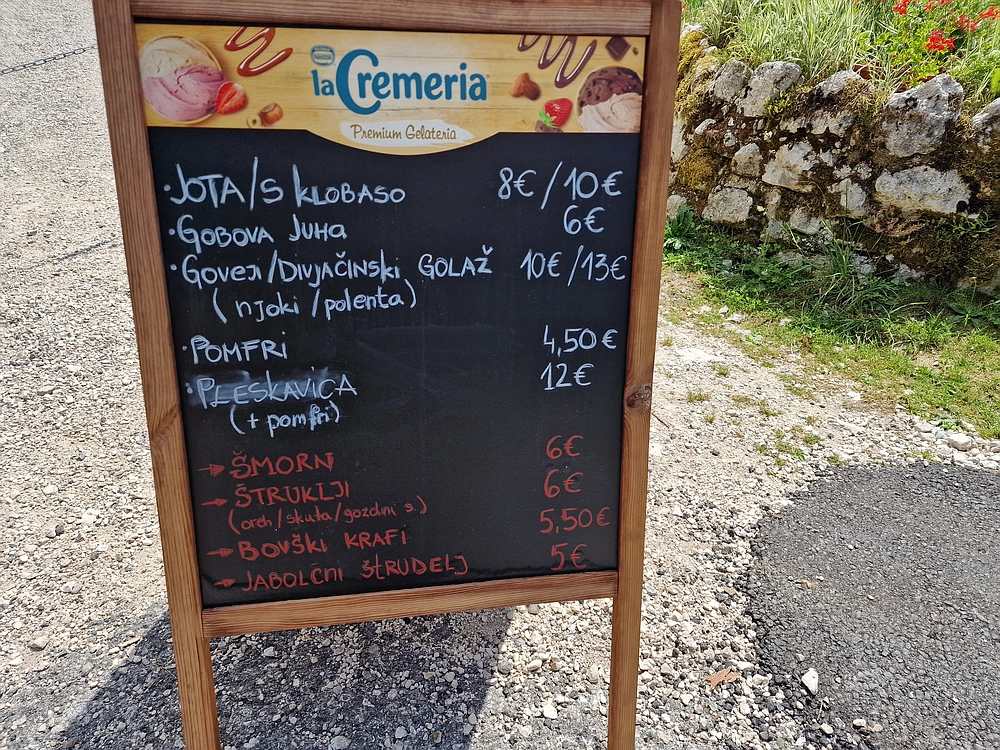 Nestlé
la Cremeria
Premium Gelateria
·JOTA/S KLOBASO 8€/10€
·GOBOVA JUHA 6€
·GOVEJI/DIVJAČINSKI GOLAŽ 10€/13€
(njoki/polenta)
·POMFRI 4,50€
·PLESKAVICA 12€
(+ pomfri)
→ ŠMORN 6€
→ ŠTRUKLJI 6€
(oreh/skuta/gozdni s.)
→ BOVŠKI KRAFI 5,50€
→ JABOLČNI ŠTRUDELJ 5€